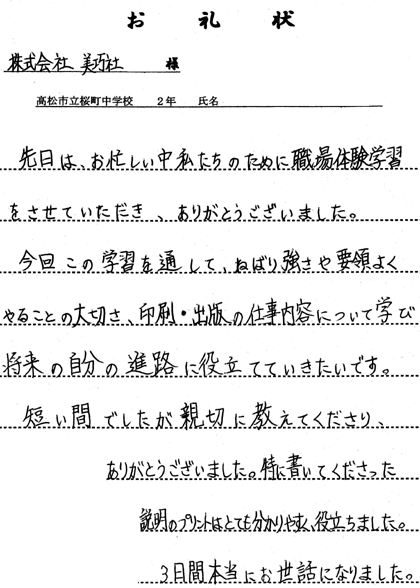 お礼状
株式会社 美巧社 様
高松市立桜町中学校 2年 氏名
先日は、お忙しい中私たちのために職場体験学習
をさせていただき、ありがとうございました。
今回この学習を通して、ねばり強さや要領よく
やることの大切さ、印刷・出版の仕事内容について学び
将来の自分の進路に役立てていきたいです。
短い間でしたが親切に教えてくださり、
ありがとうございました。特に書いてくださった
説明のプリントはとても分かりやすく、役立ちました。
3日間本当にお世話になりました。